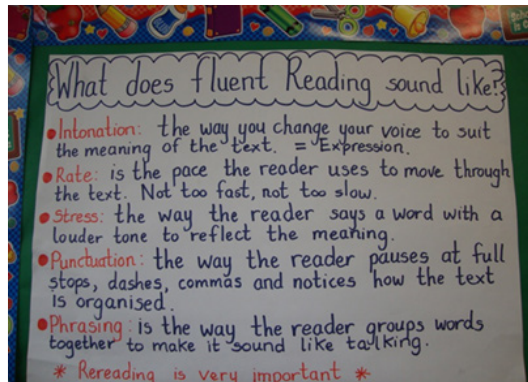 What does fluent Reading sound like?
• Intonation: the way you change your voice to suit
the meaning of the text. = Expression.
• Rate: is the pace the reader uses to move through
the text. Not too fast, not too slow.
• Stress: the way the reader says a word with a
louder tone to reflect the meaning.
• Punctuation: the way the reader pauses at full
stops, dashes, commas and notices how the text
is organised.
• Phrasing: is the way the reader groups words
together to make it sound like talking.
* Rereading is very important *